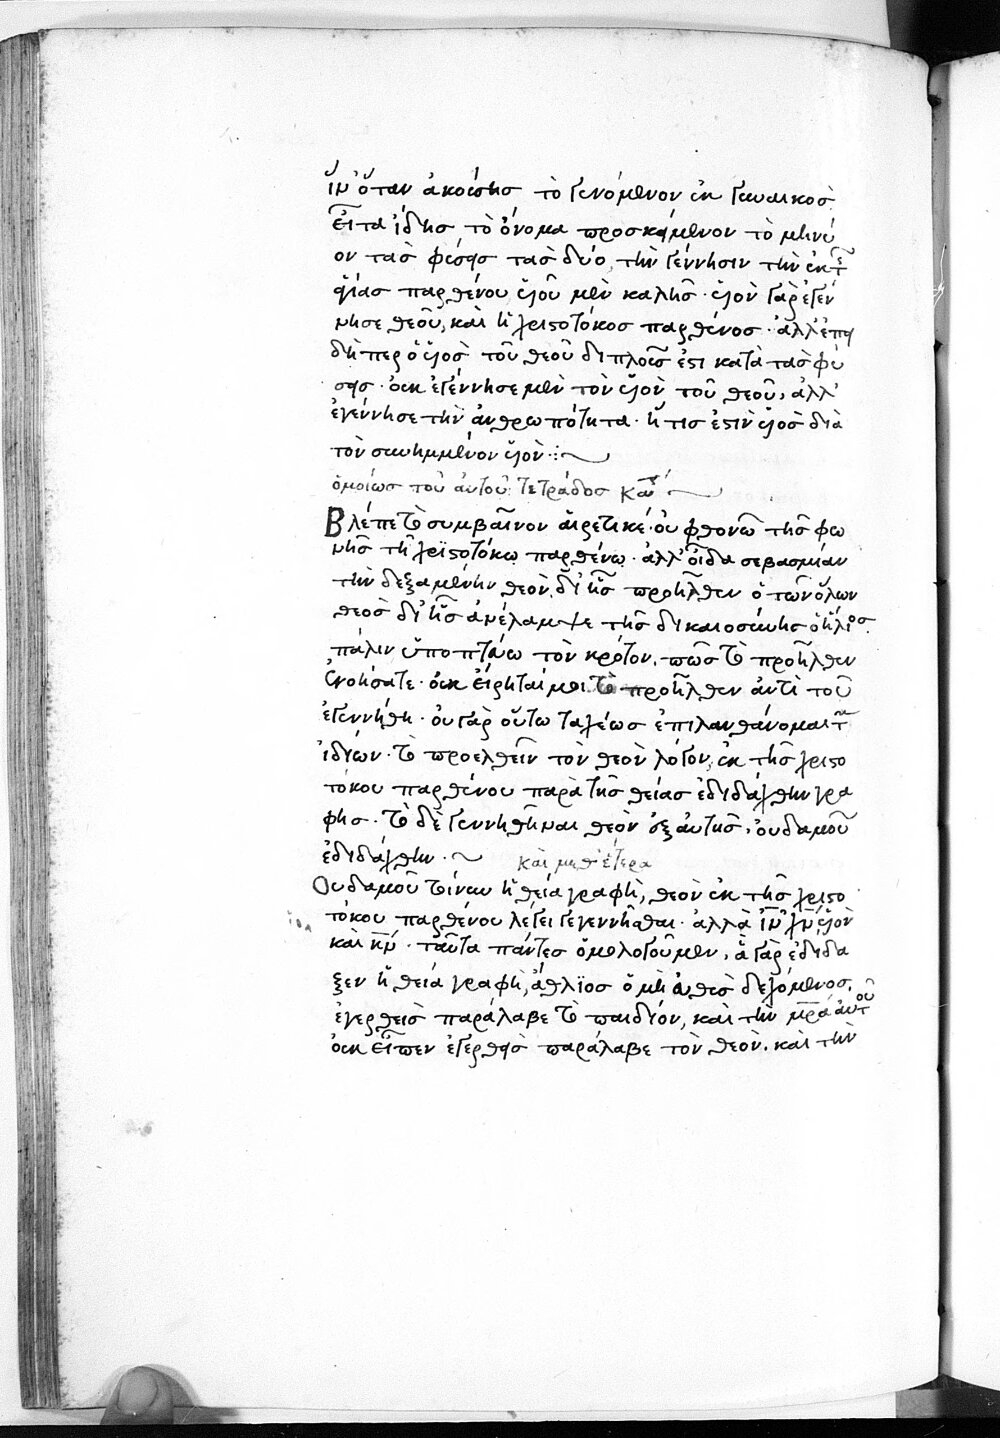 ἵν' ὅταν ἀκούσῃς τὸ γενόμενον ἐκ γυναικὸς
εἶτα ἴδῃς τὸ ὄνομα προσκείμενον τὸ μηνύ
ον τὰς φύσεις τὰς δύο, τὴν γέννησιν τὴν ἐκ τῆς
ἁγίας παρθένου υἱοῦ μὲν καλῇς· υἱὸν γὰρ ἐγέν
νησε θεοῦ, καὶ ἡ χριστοτόκος παρθένος· ἀλλ' ἐπει
δήπερ ὁ υἱὸς τοῦ θεοῦ διπλοῦς ἐστι κατὰ τὰς φύ
σεις· οὐκ ἐγέννησε μὲν τὸν υἱὸν τοῦ θεοῦ, ἀλλ'
ἐγέννησε τὴν ἀνθρωπότητα· ἥτις ἐστὶν υἱὸς διὰ
τὸν συνημμένον υἱόν:
ὁμοίως τοῦ αὐτοῦ τετράδος κδ
Βλέπε τὸ συμβαῖνον αἱρετικέ· οὐ φθονῶ τῆς φω
νῆς τῇ χριστοτόκῳ παρθένῳ· ἀλλ' οἶδα σεβασμίαν
τὴν δεξαμένην θεὸν, δι' ἧς προῆλθεν ὁ τῶν ὅλων
θεὸς δι' ἧς ἀνέλαμψε τῆς δικαιοσύνης ὁ ἥλιος.
πάλιν ὑποπτεύω τὸν κρότον. πῶς τὸ προῆλθεν
ἐνοήσατε· οὐκ εἴρηταί μοι τὸ προῆλθεν ἀντὶ τοῦ
ἐγεννήθη· οὐ γὰρ οὕτω ταχέως ἐπιλανθάνομαι τῶν
ἰδίων· τὸ προελθεῖν τὸν θεὸν λόγον, ἐκ τῆς χριστο
τόκου παρθένου παρὰ τῆς θείας ἐδιδάχθην γρα
φῆς· τὸ δὲ γεννηθῆναι θεὸν ἐξ αὐτῆς, οὐδαμοῦ
ἐδιδάχθην· καὶ μεθ' ἕτερα
Οὐδαμοῦ τοίνυν ἡ θεία γραφὴ, θεὸν ἐκ τῆς χριστο
τόκου παρθένου λέγει γεγεννῆσθαι· ἀλλὰ ἰν χν, υἱὸν
καὶ κν· ταῦτα πάντες ὁμολογοῦμεν, ἃ γὰρ ἐδίδα
ξεν ἡ θεία γραφὴ, ἄθλιος ὁ μὴ εὐθὺς δεχόμενος.
ἐγερθεὶς παράλαβε τὸ παιδίον, καὶ τὴν μρα αὐτοῦ
οὐκ εἶπεν ἐγερθεὶς παράλαβε τὸν θεὸν. καὶ τὴν